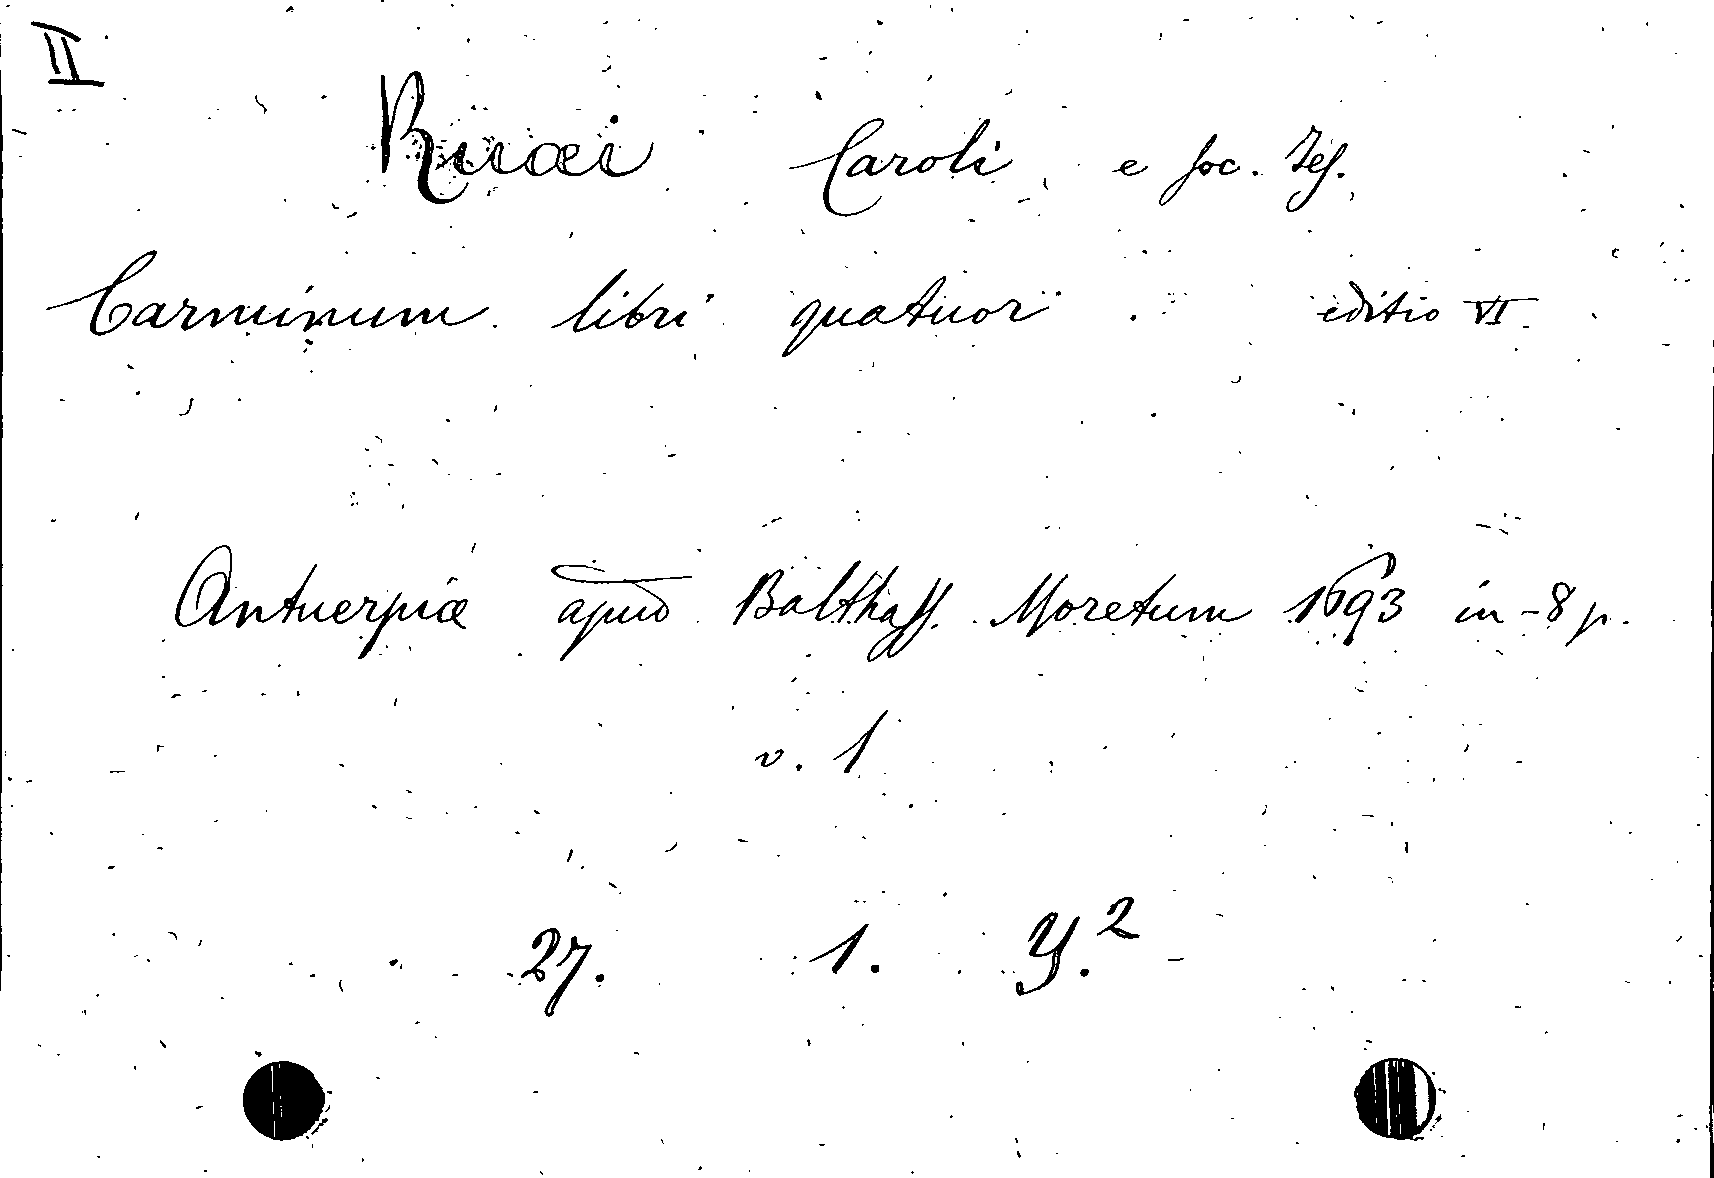 II
Ruæi Caroli e soc. Jes.
Carminum libri quatuor. editio VI
Antuerpiæ apud Balthass. Moretum 1693 in-8 p.
v. 1
27. 1. Y.²